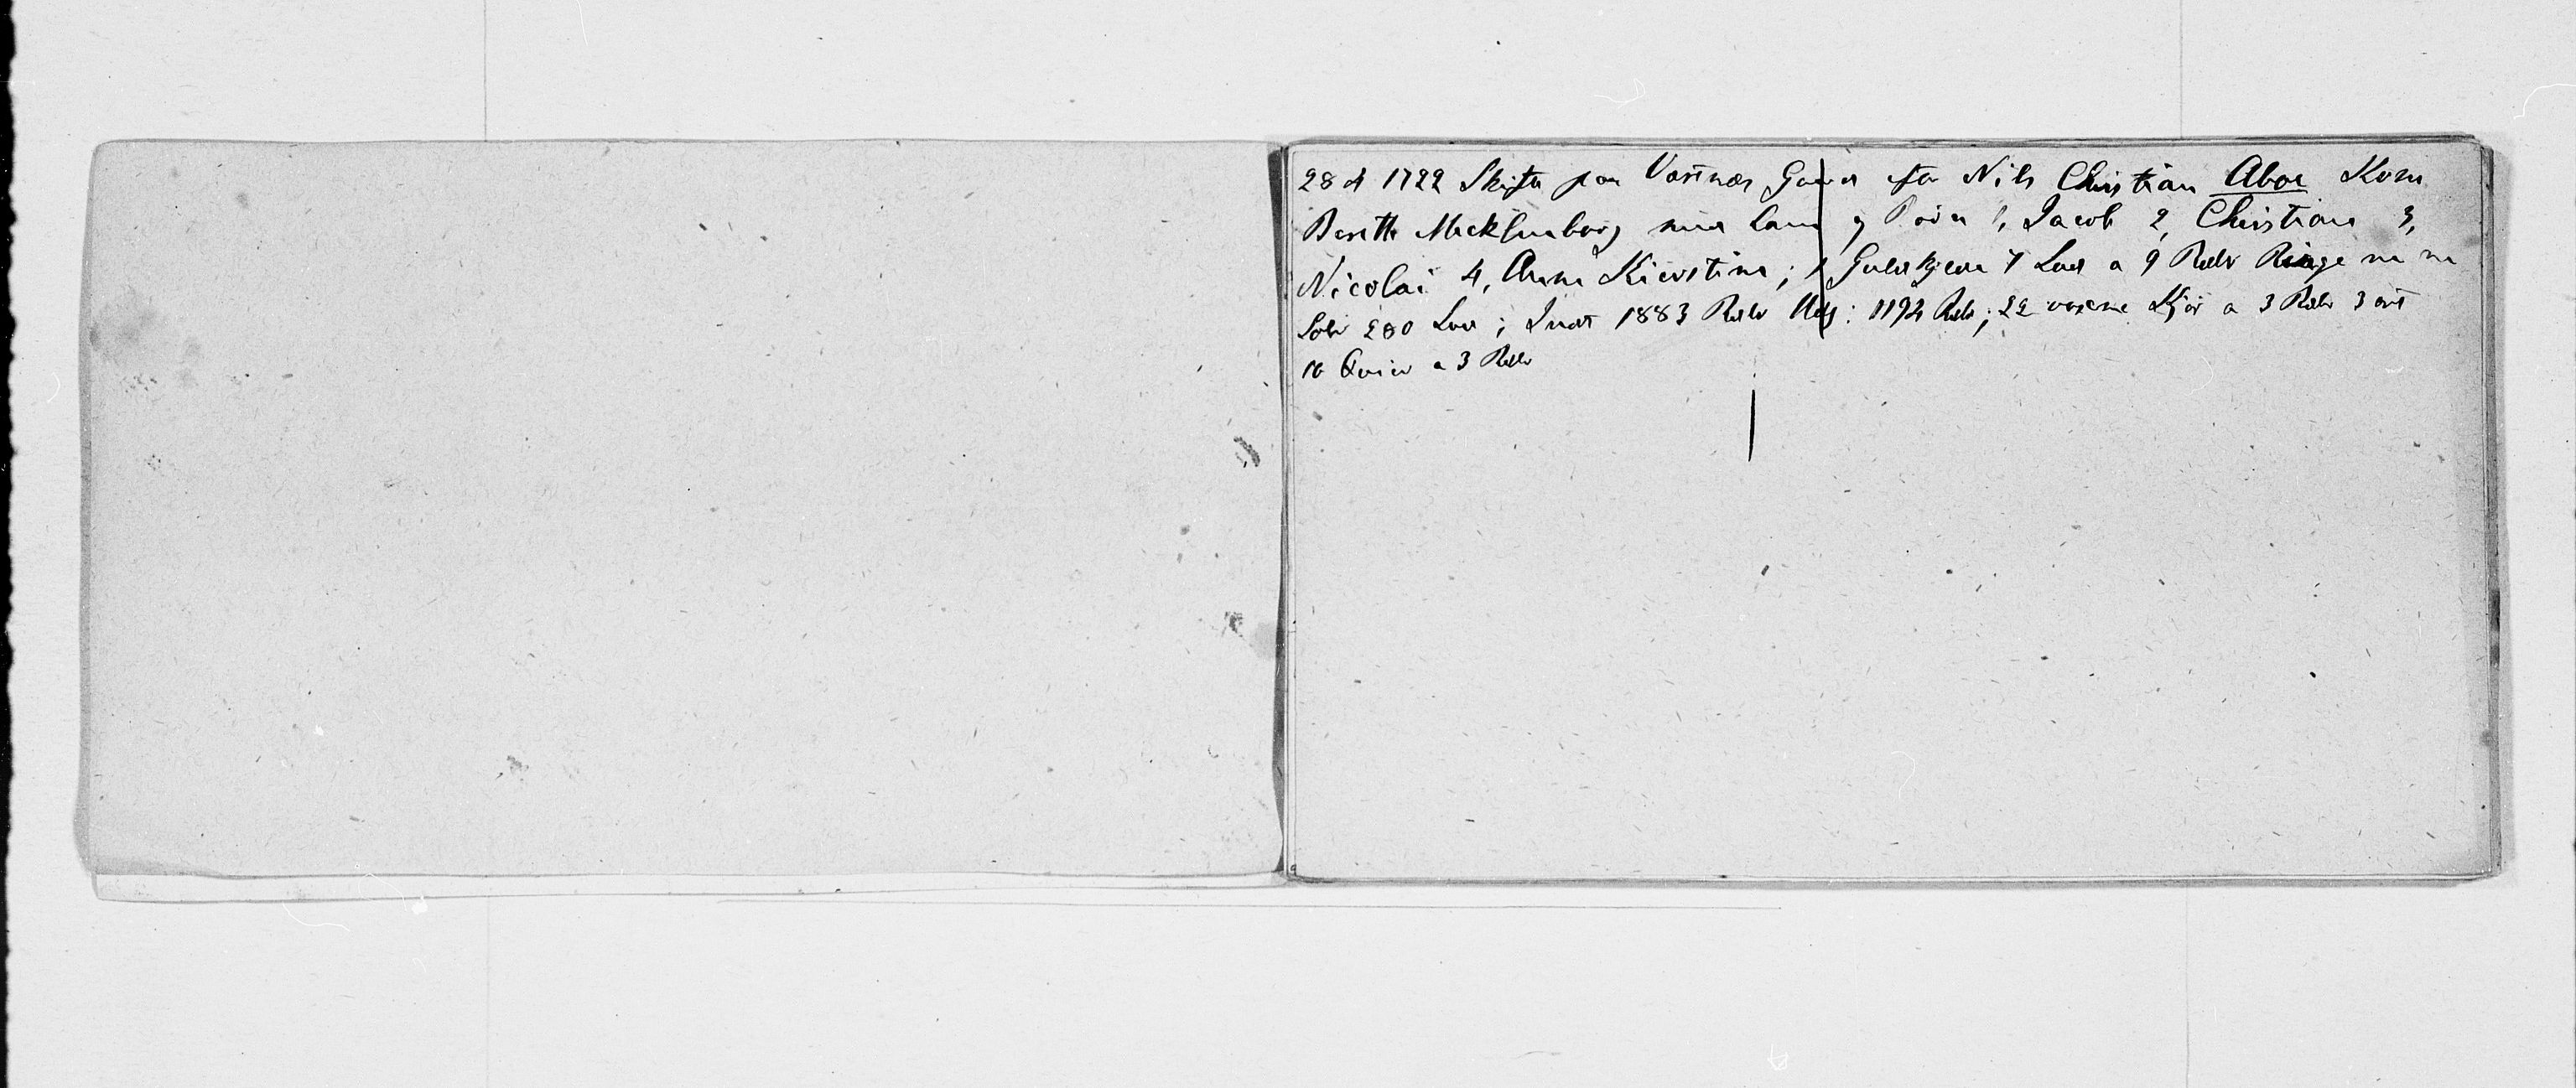 28 4 1722 Skifte paa Vastnæs Gaard efter Nils Christian Aboe Kone
Berette Mecklenborg sine Lam og Børn 1, Jacob 2, Christian 3,
Nicolai 4, Anna Kierstina; 1 Guldkjæde 7 Lod a 9 Rdlr Ringe m m
Sølv 280 Lod; Indt 1883 Rdlr Udg: 1192 Rdr; 22 voxene Kjør a 3 Rdlr 3 ort
10 Qvier a 3 Rdlr